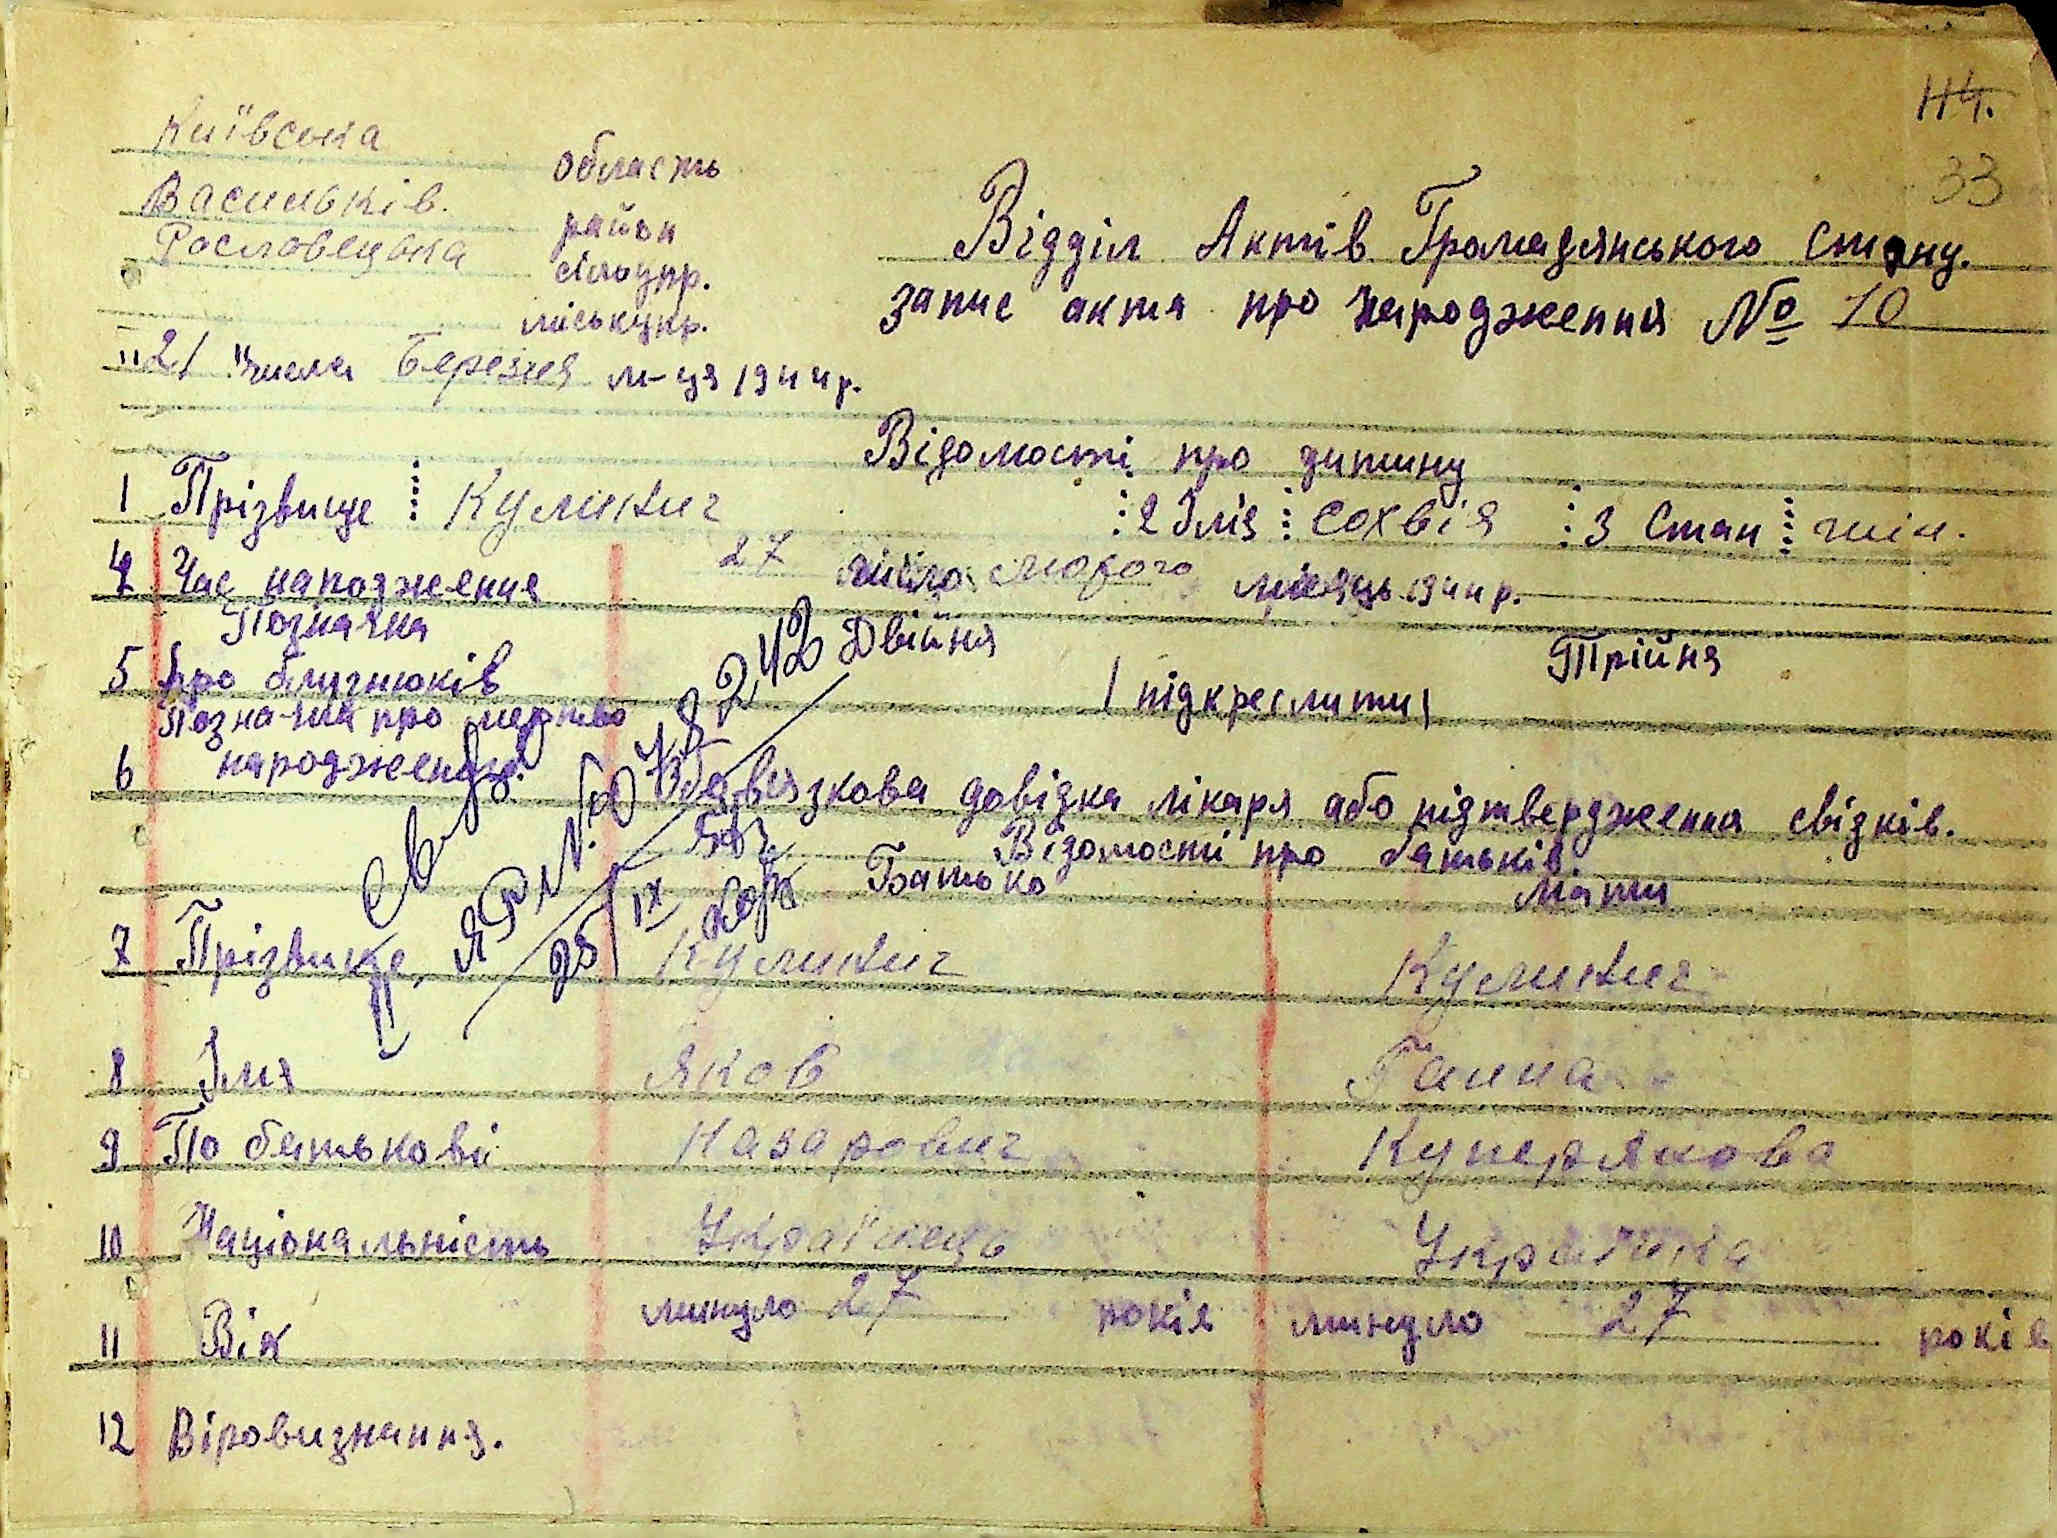 114.
33
Київська область
Васильків. район
Рословецька сілоупр.
міськупр.
Відділ Актів Громадянського стану.
запис акта про народження № 10
"21" числа Березня м-ця 1944р.
Відомості про дитину
1 Прізвище Кулинич 2 Імя Сохвія 3 Стан жін.
4 Час народження 27 число лютого місяць 1944р.
Позначка
5 про близнюків Двійня Трійня
/ підкреслити /
Позначка про мертво
6 народження. Обовязкова довідка лікаря або підтвердження свідків.
Відомості про батьків.
Батько Мати
7 Прізвище, Кулинич Кулинич
8 Імя Яков Ганна
9 По батькові Назарович Куперянова
10 Національність Українець Українка
11 Вік минуло 27 років минуло 27 років
12 Віровизнання.